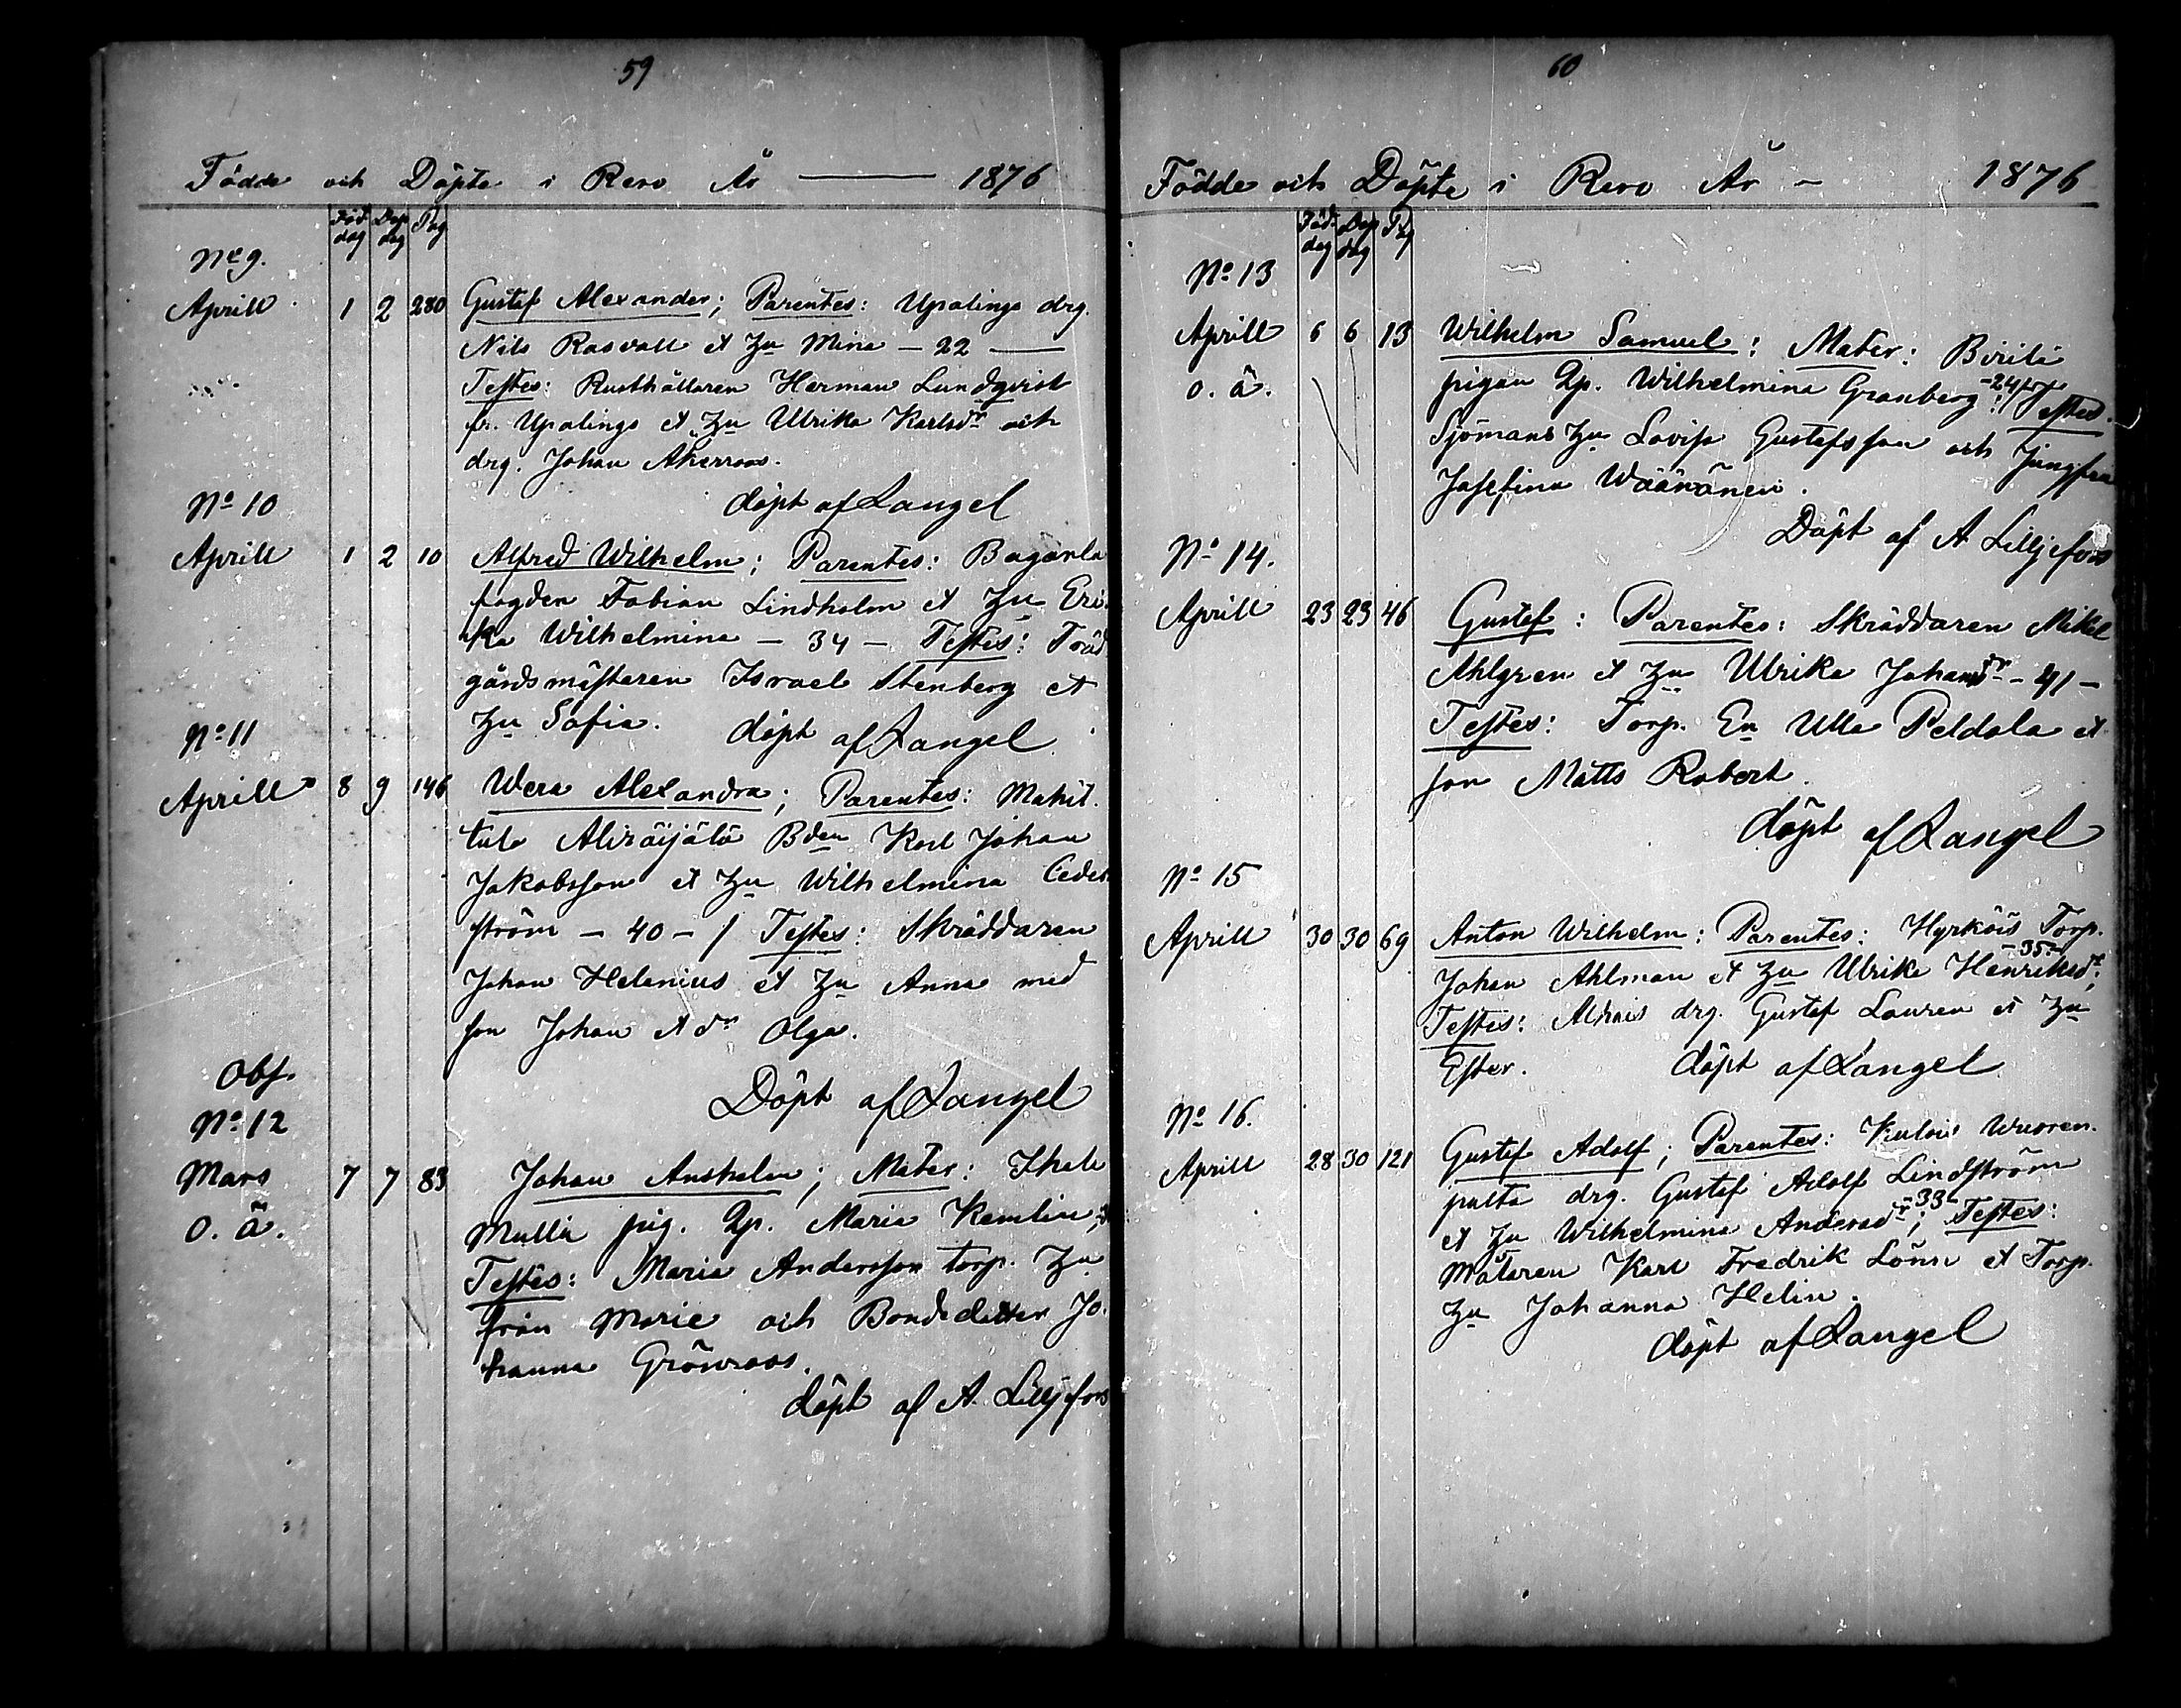 59
Födde och Döpte i Reso År — 1876
Föd dag Dop dag Pag
No 9.
Aprill 1 2 280 Gustaf Alexander; Parentes: Upalinga drg.
Nils Rosvall et Hu Mina — 22 —
Testes: Rusthållaren Herman Lundqvist
fr. Upalinga et Hu Ulrika Karlsdr och
drg. Johan Åkerroos.
döpt af Langel
No 10
Aprill 1 2 10 Alfred Wilhelm; Parentes: Bagarla
fogden Fabian Lindholm et Hu Eri-
ka Wilhelmina — 34 — Testes: Träd
gårdsmästaren Israel Stenberg et
Hu Sofia. döpt af Langel
No 11
Aprill 8 9 146 Wera Alexandra; Parentes: Mahit-
tula Bden Karl Johan
Jakobsson et Hu Wilhelmina Ceder
ström — 40 — / Testes: Skräddaren
Johan Helenius et Hu Anna med
son Johan et dr Olga.
Döpt af Langel
Obs.
No 12
Mars 7 7 83 Johan Anshelm; Mater: Ihala
o. ä. Mulla pig. Qp. Maria Kemlin;
Testes: Maria Andersson torp. Hu
från Marie och Bondedotter Jo-
hanna Grönroos.
döpt af A. Lilljefors
60
Födde och Döpte i Reso År — 1876
Föd. dag Dop dag Pag
No 13
Aprill 6 6 13 Wilhelm Samuel: Mater: Birila
o. ä. pigan Qp. Wilhelmina Granberg -24-; Testes.
Sjömans Hu Lovisa Gustafsson och Jungfru
Josefina Wäänänen.
Döpt af A Lilljefors
No 14.
Aprill 23 23 46 Gustaf: Parentes: Skräddaren Mikel
Ahlgren et Hu Ulrika Johansdr — 41 —
Testes: Torp. En Ulla Peldola et
son Matts Robert.
döpt af Langel
No 15
Aprill 30 30 69 Anton Wilhelm: Parentes: Hyrköis Torp.
Johan Ahlman et Hu Ulrika Henriksdr -35-;
Testes: Alhais drg. Gustaf Lauren et Hu
Ester. döpt af Langel
No 16.
Aprill 28 30 121 Gustaf Adolf; Parentes: Kulois Wuoren-
palta drg. Gustaf Adolf Lindström
et Hu Wilhelmina Andersdr -33-; Testes:
Målaren Karl Fredrik Lönn et Torp.
Hu Johanna Helin.
döpt af Langel